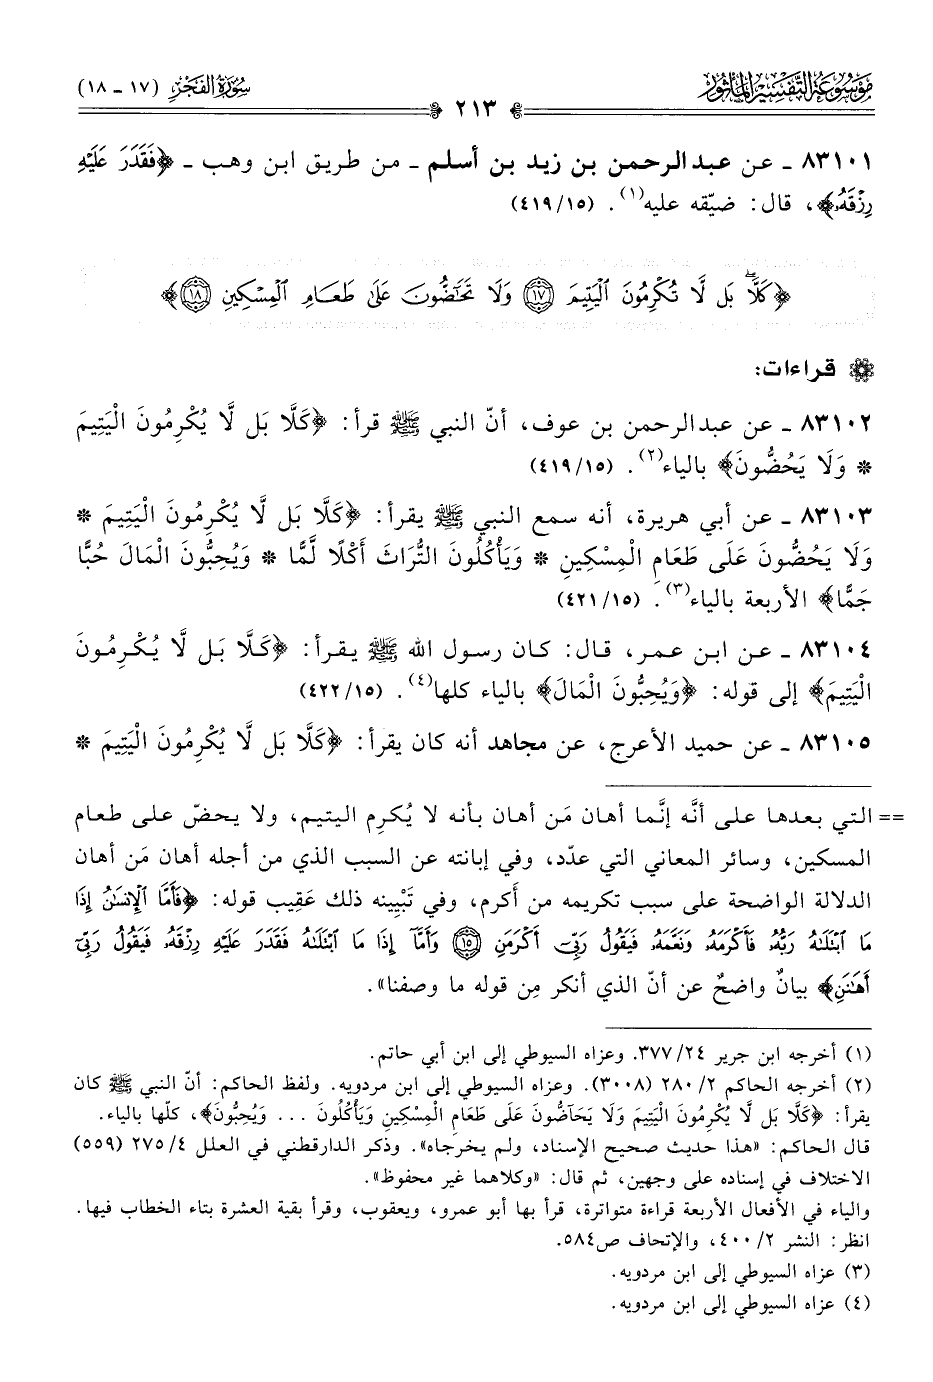 مَوْسُوعَة التَّفْسِيْر المَأْثُور
سُورَةُ الفَجْرِ (١٧ - ١٨)
٢١٣
٨٣١٠١ - عن عبدالرحمن بن زيد بن أسلم - من طريق ابن وهب - ﴿فَقَدَرَ عَلَيْهِ
رِزْقَهُۥ﴾، قال: ضيّقه عليه(١). (٤١٩/١٥)
﴿كَلَّاۖ بَل لَّا تُكْرِمُونَ ٱلْيَتِيمَ ١٧ وَلَا تَحَٰٓضُّونَ عَلَىٰ طَعَامِ ٱلْمِسْكِينِ ١٨﴾
قراءات:
٨٣١٠٢ - عن عبدالرحمن بن عوف، أنّ النبي ﷺ قرأ: ﴿كَلَّا بَل لَّا يُكْرِمُونَ الْيَتِيمَ
* وَلَا يَحُضُّونَ﴾ بالياء(٢). (٤١٩/١٥)
٨٣١٠٣ - عن أبي هريرة، أنه سمع النبي ﷺ يقرأ: ﴿كَلَّا بَل لَّا يُكْرِمُونَ الْيَتِيمَ *
وَلَا يَحُضُّونَ عَلَى طَعَامِ الْمِسْكِينِ * وَيَأْكُلُونَ التُّرَاثَ أَكْلًا لَّمًّا * وَيُحِبُّونَ الْمَالَ حُبًّا
جَمًّا﴾ الأربعة بالياء(٣). (٤٢١/١٥)
٨٣١٠٤ - عن ابن عمر، قال: كان رسول الله ﷺ يقرأ: ﴿كَلَّا بَل لَّا يُكْرِمُونَ
الْيَتِيمَ﴾ إلى قوله: ﴿وَيُحِبُّونَ الْمَالَ﴾ بالياء كلها(٤). (٤٢٢/١٥)
٨٣١٠٥ - عن حميد الأعرج، عن مجاهد أنه كان يقرأ: ﴿كَلَّا بَل لَّا يُكْرِمُونَ الْيَتِيمَ *
== التي بعدها على أنَّه إنَّما أهان مَن أهان بأنه لا يُكرِم اليتيم، ولا يحضّ على طعام
المسكين، وسائر المعاني التي عدّد، وفي إبانته عن السبب الذي من أجله أهان مَن أهان
الدلالة الواضحة على سبب تكريمه من أكرم، وفي تَبْيِينه ذلك عَقِيب قوله: ﴿فَأَمَّا ٱلْإِنسَٰنُ إِذَا
مَا ٱبْتَلَىٰهُ رَبُّهُۥ فَأَكْرَمَهُۥ وَنَعَّمَهُۥ فَيَقُولُ رَبِّىٓ أَكْرَمَنِ ١٥ وَأَمَّآ إِذَا مَا ٱبْتَلَىٰهُ فَقَدَرَ عَلَيْهِ رِزْقَهُۥ فَيَقُولُ رَبِّىٓ
أَهَٰنَنِ﴾ بيانٌ واضحٌ عن أنّ الذي أنكر مِن قوله ما وصفنا».
(١) أخرجه ابن جرير ٣٧٧/٢٤. وعزاه السيوطي إلى ابن أبي حاتم.
(٢) أخرجه الحاكم ٢٨٠/٢ (٣٠٠٨). وعزاه السيوطي إلى ابن مردويه. ولفظ الحاكم: أنّ النبي ﷺ كان
يقرأ: ﴿كَلَّا بَل لَّا يُكْرِمُونَ الْيَتِيمَ وَلَا يَحَاضُّونَ عَلَى طَعَامِ الْمِسْكِينِ وَيَأْكُلُونَ ... وَيُحِبُّونَ﴾، كلّها بالياء.
قال الحاكم: «هذا حديث صحيح الإسناد، ولم يخرجاه». وذكر الدارقطني في العلل ٢٧٥/٤ (٥٥٩)
الاختلاف في إسناده على وجهين، ثم قال: «وكلاهما غير محفوظ».
والياء في الأفعال الأربعة قراءة متواترة، قرأ بها أبو عمرو، ويعقوب، وقرأ بقية العشرة بتاء الخطاب فيها.
انظر: النشر ٤٠٠/٢، والإتحاف ص٥٨٤.
(٣) عزاه السيوطي إلى ابن مردويه.
(٤) عزاه السيوطي إلى ابن مردويه.